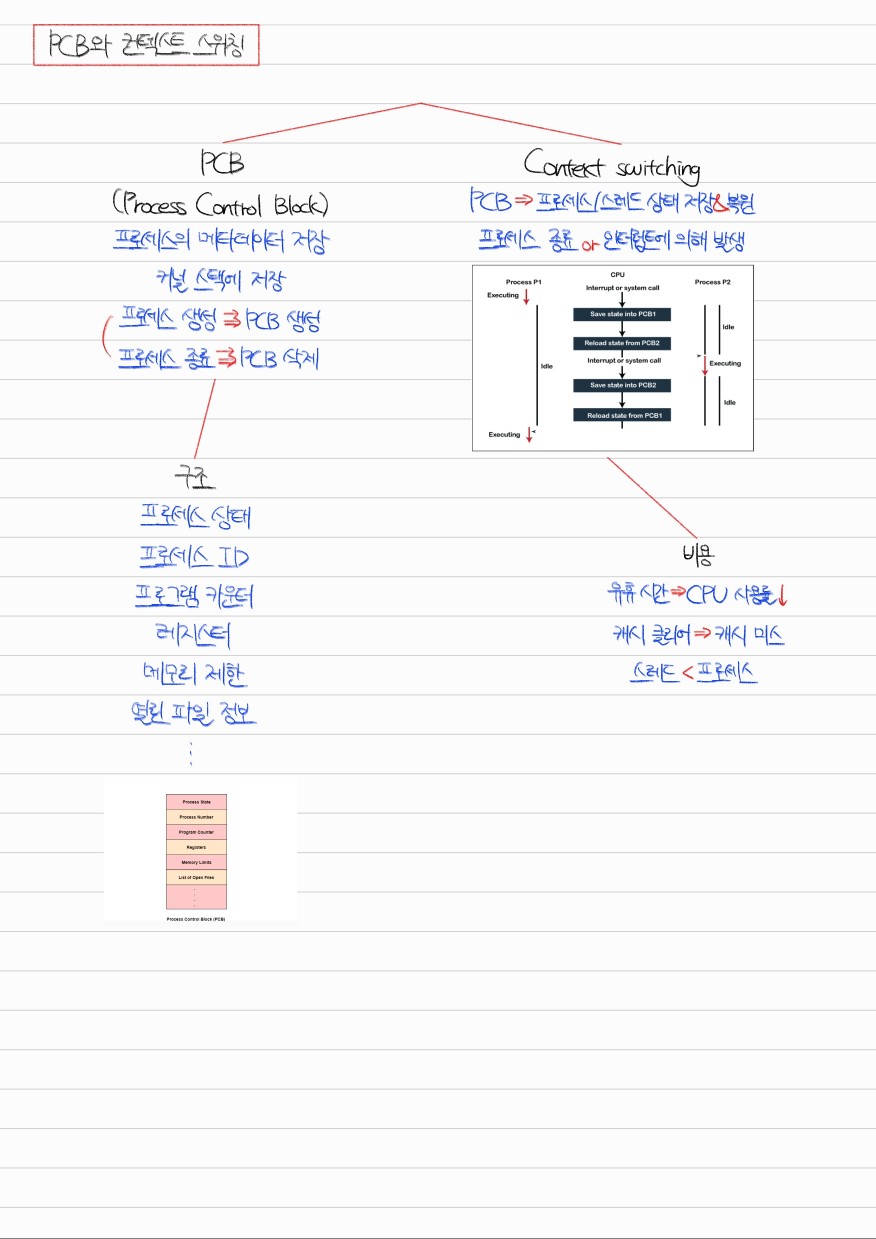 PCB와 컨텍스트 스위칭
PCB
(Process Control Block)
프로세스의 메타데이터 저장
커널 스택에 저장
프로세스 생성 ⇒ PCB 생성
프로세스 종료 ⇒ PCB 삭제
구조
프로세스 상태
프로세스 ID
프로그램 카운터
레지스터
메모리 제한
열린 파일 정보
⋮
Process State
Process Number
Program Counter
Registers
Memory Limits
List of Open Files
Process Control Block (PCB)
Context switching
PCB ⇒ 프로세스/스레드 상태 저장&복원
프로세스 종료 or 인터럽트에 의해 발생
CPU
Process P1
Interrupt or system call
Process P2
Executing
Save state into PCB1
Idle
Reload state from PCB2
Interrupt or system call
Executing
Idle
Save state into PCB2
Idle
Reload state from PCB1
Executing
비용
유휴 시간 ⇒ CPU 사용률↓
캐시 클리어 ⇒ 캐시 미스
스레드 < 프로세스